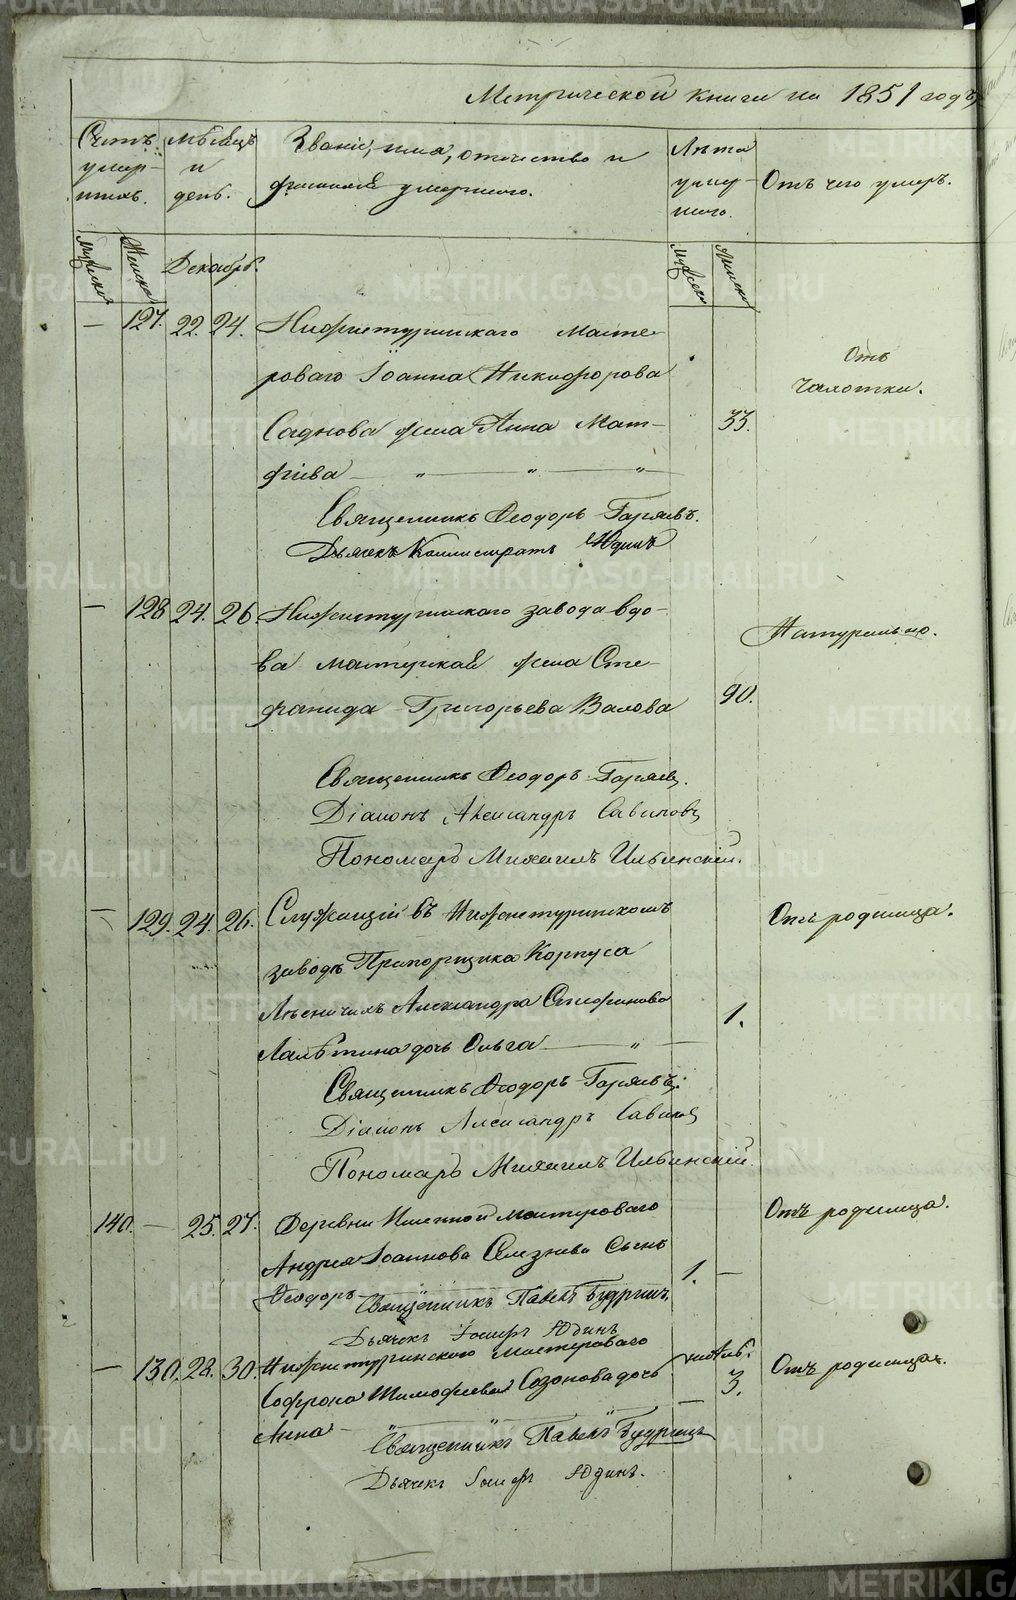 Метрической книги на 1851 годъ
Счетъ умер-шихъ.
Мѣсяцъ и день.
Званіе, имя, отчество и фамилія умершаго.
Лѣта умер-шаго.
Отъ чего умеръ.
Мужеска
Женска
Декабрь.
Мужеска
Женска
— 127. 22. 24. Нижнетуринскаго масте-
роваго Іоанна Никифорова
Отъ
чахотки.
Саднова жена Анна Мат- 33.
фіева — " — " — "
Священникъ Ѳеодоръ Гаряевъ.
Дьячекъ Каллистратъ Юдинъ
— 128 24. 26. Нижнетуринскаго завода вдо-
Натурально.
ва мастерская жена Сте-
фанида Григорьева Валова 90.
Священникъ Ѳеодоръ Гаряевъ.
Діаконъ Александръ Савиновъ
Пономарь Михаилъ Ильинскій.
— 129. 24. 26. Служащій въ Нижнетуринскомъ
Отъ родимца.
заводѣ Прапорщика Корпуса
Лѣсничихъ Александра Стефанова 1.
дочь Ольга — " —
Священникъ Ѳеодоръ Гаряевъ.
Діаконъ Александръ Савинов
Пономарь Михаилъ Ильинскій.
140. — 25. 27. Деревни Именной мастероваго
Отъ родимца.
Андрея Іоаннова Селезнева сынъ
Ѳеодоръ 1. —
Священникъ Павелъ
Дьячекъ Іосифъ Юдинъ
— 130. 28. 30. Нижнетуринскаго мастероваго
Отъ родимца.
Софрона Тимофеева Созонова дочь 3.
Анна —
Священникъ Павелъ
Дьячекъ Іосифъ Юдинъ.
METRIKI.GASO-URAL.RU